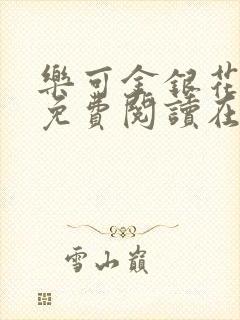 樂可金銀花
免費閱讀在
雪山巔